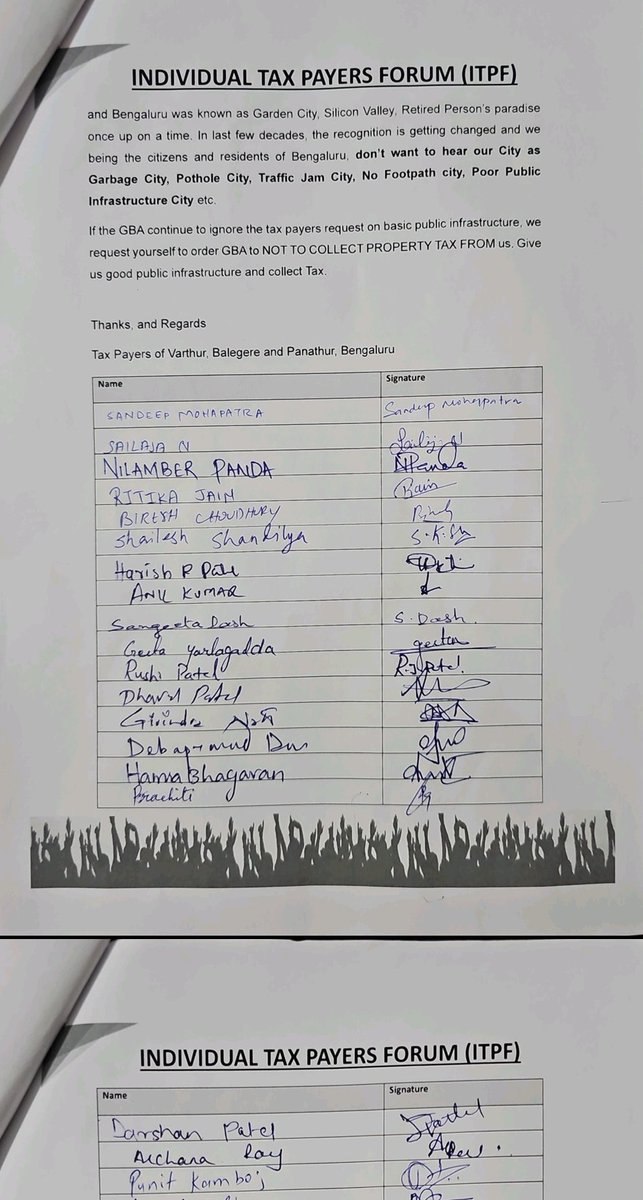 INDIVIDUAL TAX PAYERS FORUM (ITPF)
and Bengaluru was known as Garden City, Silicon Valley, Retired Person's paradise
once up on a time. In last few decades, the recognition is getting changed and we
being the citizens and residents of Bengaluru, don't want to hear our City as
Garbage City, Pothole City, Traffic Jam City, No Footpath city, Poor Public
Infrastructure City etc.
If the GBA continue to ignore the tax payers request on basic public infrastructure, we
request yourself to order GBA to NOT TO COLLECT PROPERTY TAX FROM us. Give
us good public infrastructure and collect Tax.
Thanks, and Regards
Tax Payers of Varthur, Balegere and Panathur, Bengaluru
Name Signature
SANDEEP MOHAPATRA Sandeep Mohapatra
SAILAJA N
NILAMBER PANDA NPanda
RITIKA JAIN
BIRESH CHOUDHURY
Shailesh Shandilya
Harish P Patel
ANIL KUMAR
Sangeeta Dash S. Dash.
Geeta Yarlagadda geeta
Rushi Patel R.J.Patel.
Dhaval Patel
Girindra
Debaprasad Das
Hanna Bhagavan
Prachiti
INDIVIDUAL TAX PAYERS FORUM (ITPF)
Name Signature
Darshan Patel
Archana Ray
Punit Kamboj